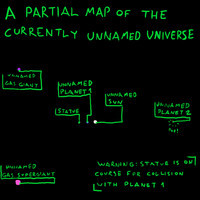 A PARTIAL MAP OF THE
CURRENTLY UNNAMED UNIVERSE
UNNAMED
GAS GIANT
UNNAMED
PLANET 1
UNNAMED
SUN
STATUE
UNNAMED
PLANET 2
UNNAMED
GAS SUPERGIANT
WARNING: STATUE IS ON
COURSE FOR COLLISION
WITH PLANET 1